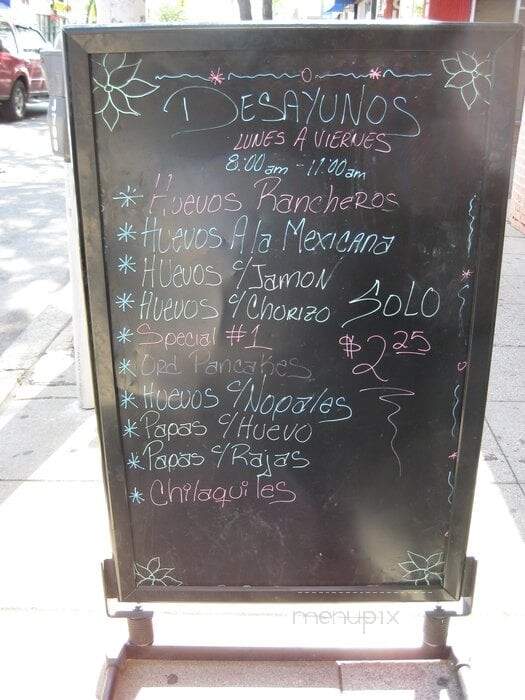 DESAYUNOS
LUNES A VIERNES
8:00am - 11:00am
* Huevos Rancheros
* Huevos A la Mexicana
* Huevos c/Jamon
* Huevos c/Chorizo
SOLO
* Special #1
$2 25
* Ord Pancakes
* Huevos c/Nopales
* Papas c/Huevo
* Papas c/Rajas
* Chilaquiles
menupix